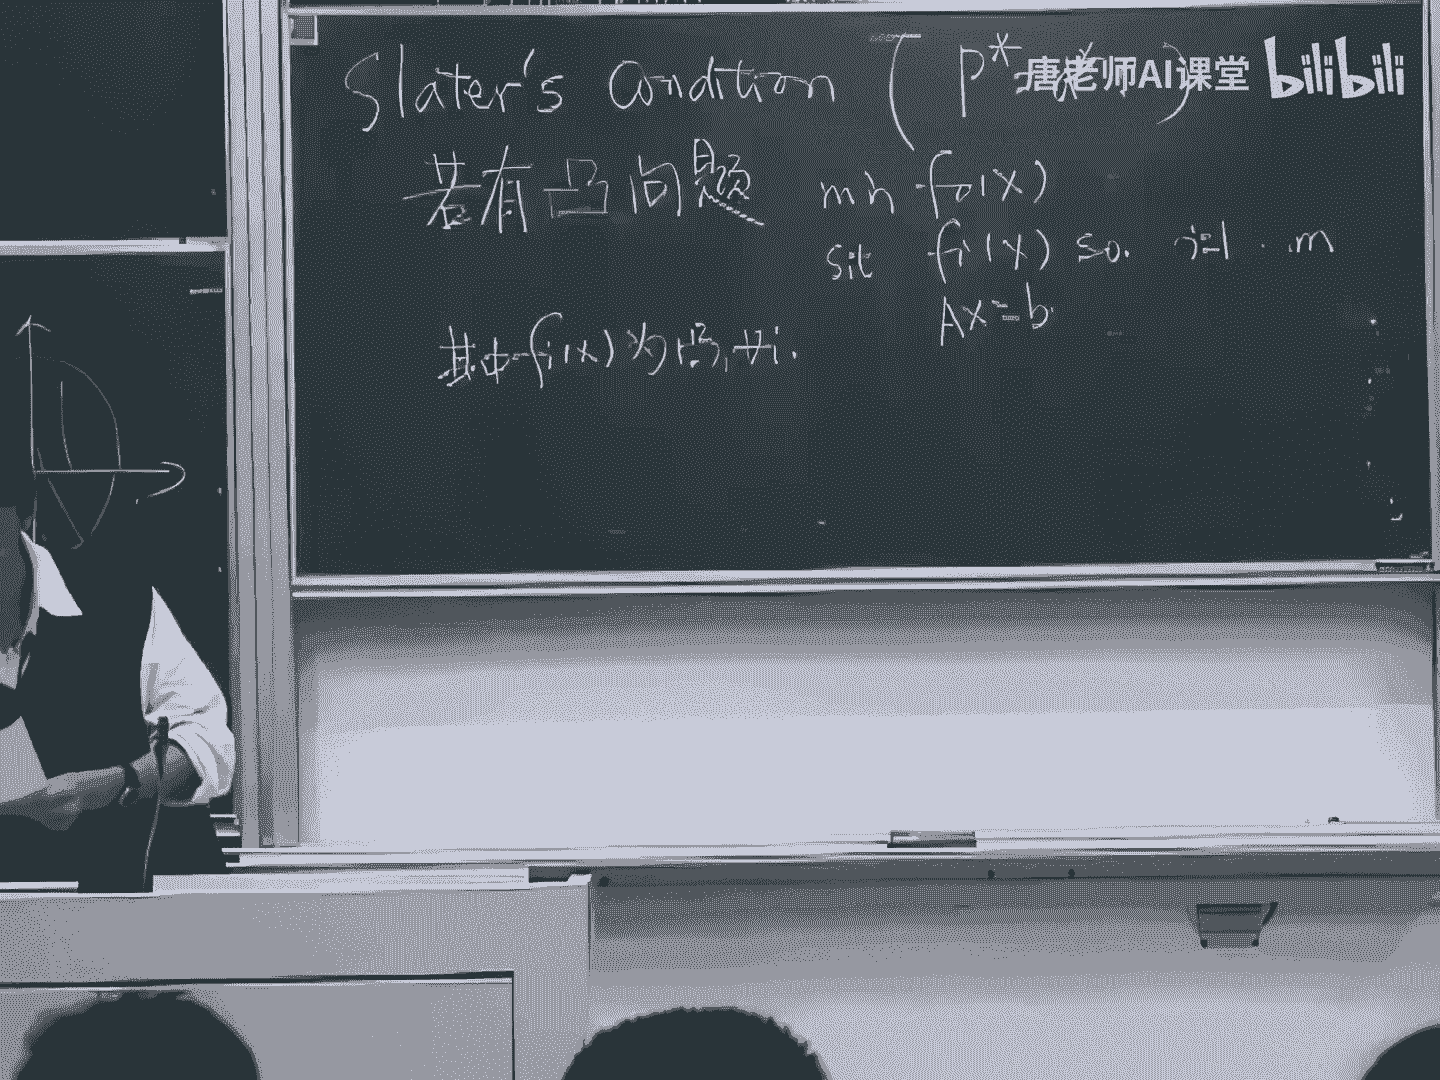 Slater's Condition ( P*
唐老师AI课堂 bilibili
若有凸问题 min f₀(x)
s.t fi(x) ≤0. i=1 . .m
Ax=b.
其中fi(x)为凸,∀i.